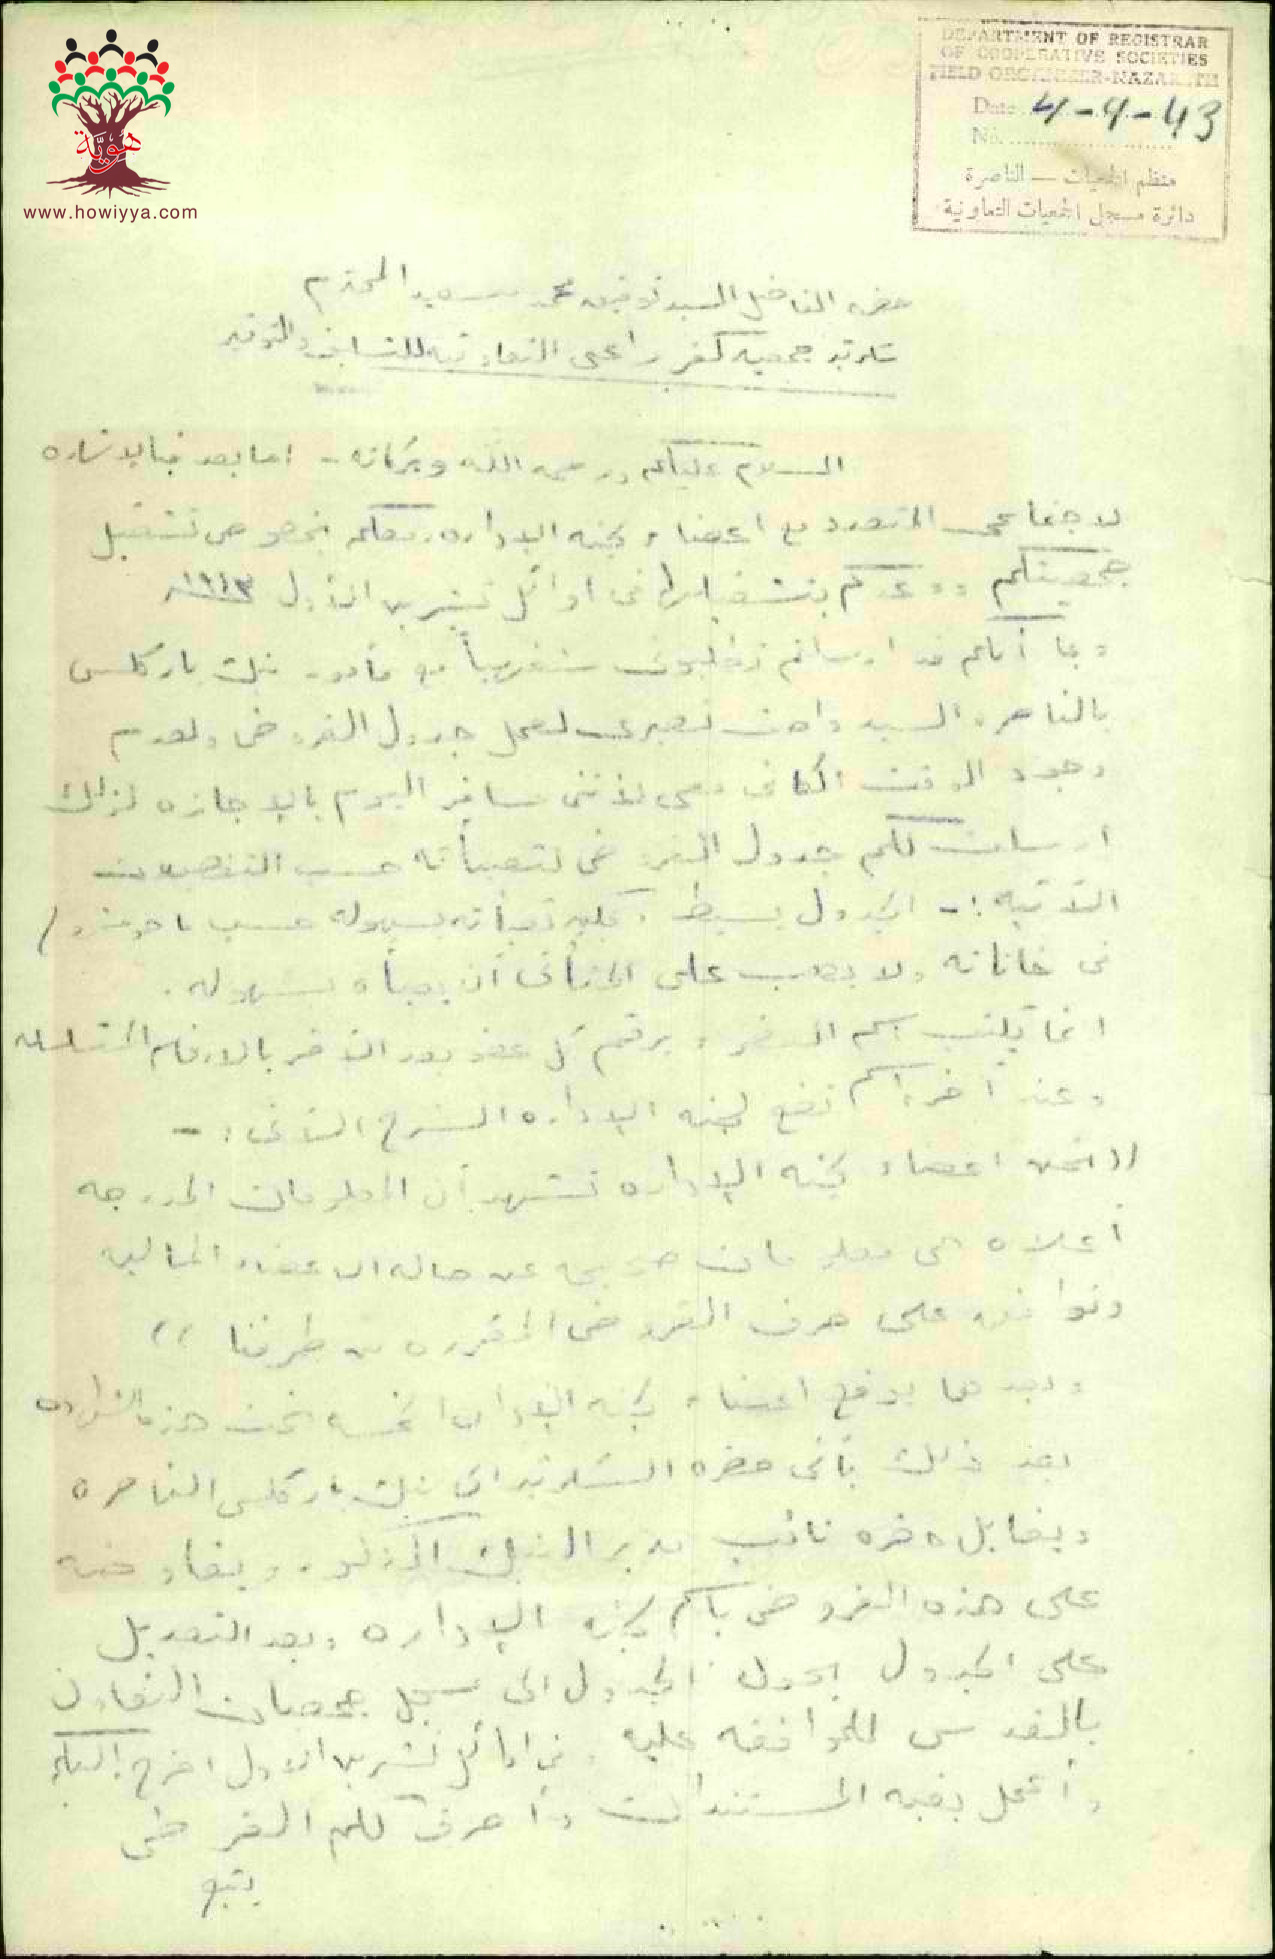 هوية
www.howiyya.com
DEPARTMENT OF REGISTRAR
OF COOPERATIVE SOCIETIES
FIELD ORGANISER-NAZARETH
Date 4-9-43
No.
منظم الجمعيات — الناصرة
دائرة مسجل الجمعيات التعاونية
حضرة الفاضل السيد توفيق محمد سعيد المحترم
سكرتير جمعية كفر راعي التعاونية للتسليف والتوفير
السلام عليكم ورحمة الله وبركاته - اما بعد فبالاشاره
لاجتماعي المتعدد مع اعضاء لجنه الاداره معكم بخصوص تشغيل
جمعيتكم ووعدكم بتشغيلها في اوائل تشرين الأول ١٩٤٣
وبما أنكم قد ارسلتم تطلبون شفهياً من مأمور بنك باركلس
بالناصره السيد واصف لعمل جدول القروض ولعدم
وجود الوقت الكافي معي لأنني مسافر اليوم بالاجازه لذلك
ارسلت لكم جدول القروض لتعبأته حسب التفصيلات
الآتيه :- الجدول بسيط ويمكن تعبأته بسهوله حسب ما هو
في خاناته ولا يصعب على أن يعبأه بسهوله .
انما يكتب اسم العضو ويرقم كل عضو بعد الآخر بالارقام المتسلسله
وعند آخر اسم تضع لجنه الاداره الشرح الآتي :-
(( نحن اعضاء لجنه الاداره نشهد أن المعلومات المدرجه
أعلاه هي معلومات صحيحه عن حاله الاعضاء الماليه
ونوافق على صرف القروض المقرره من طرفنا ))
وبعدها يوقع اعضاء لجنه الاداره الخمسه تحت هذه الشهاده
بعد ذلك يأتي حضره السكرتير الى بنك باركلس الناصره
ويقابل حضره نائب مدير البنك المذكور ويفاوضه
على هذه القروض باسم لجنة الإداره وبعد التعديل
على الجدول يحول الجدول الى مسجل جمعيات التعاون
بالقدس للموافقه عليه وفي اوائل تشرين الاول اخرج اليكم
وأعمل بقيه المستندات وأصرف لكم القروض
يتبع